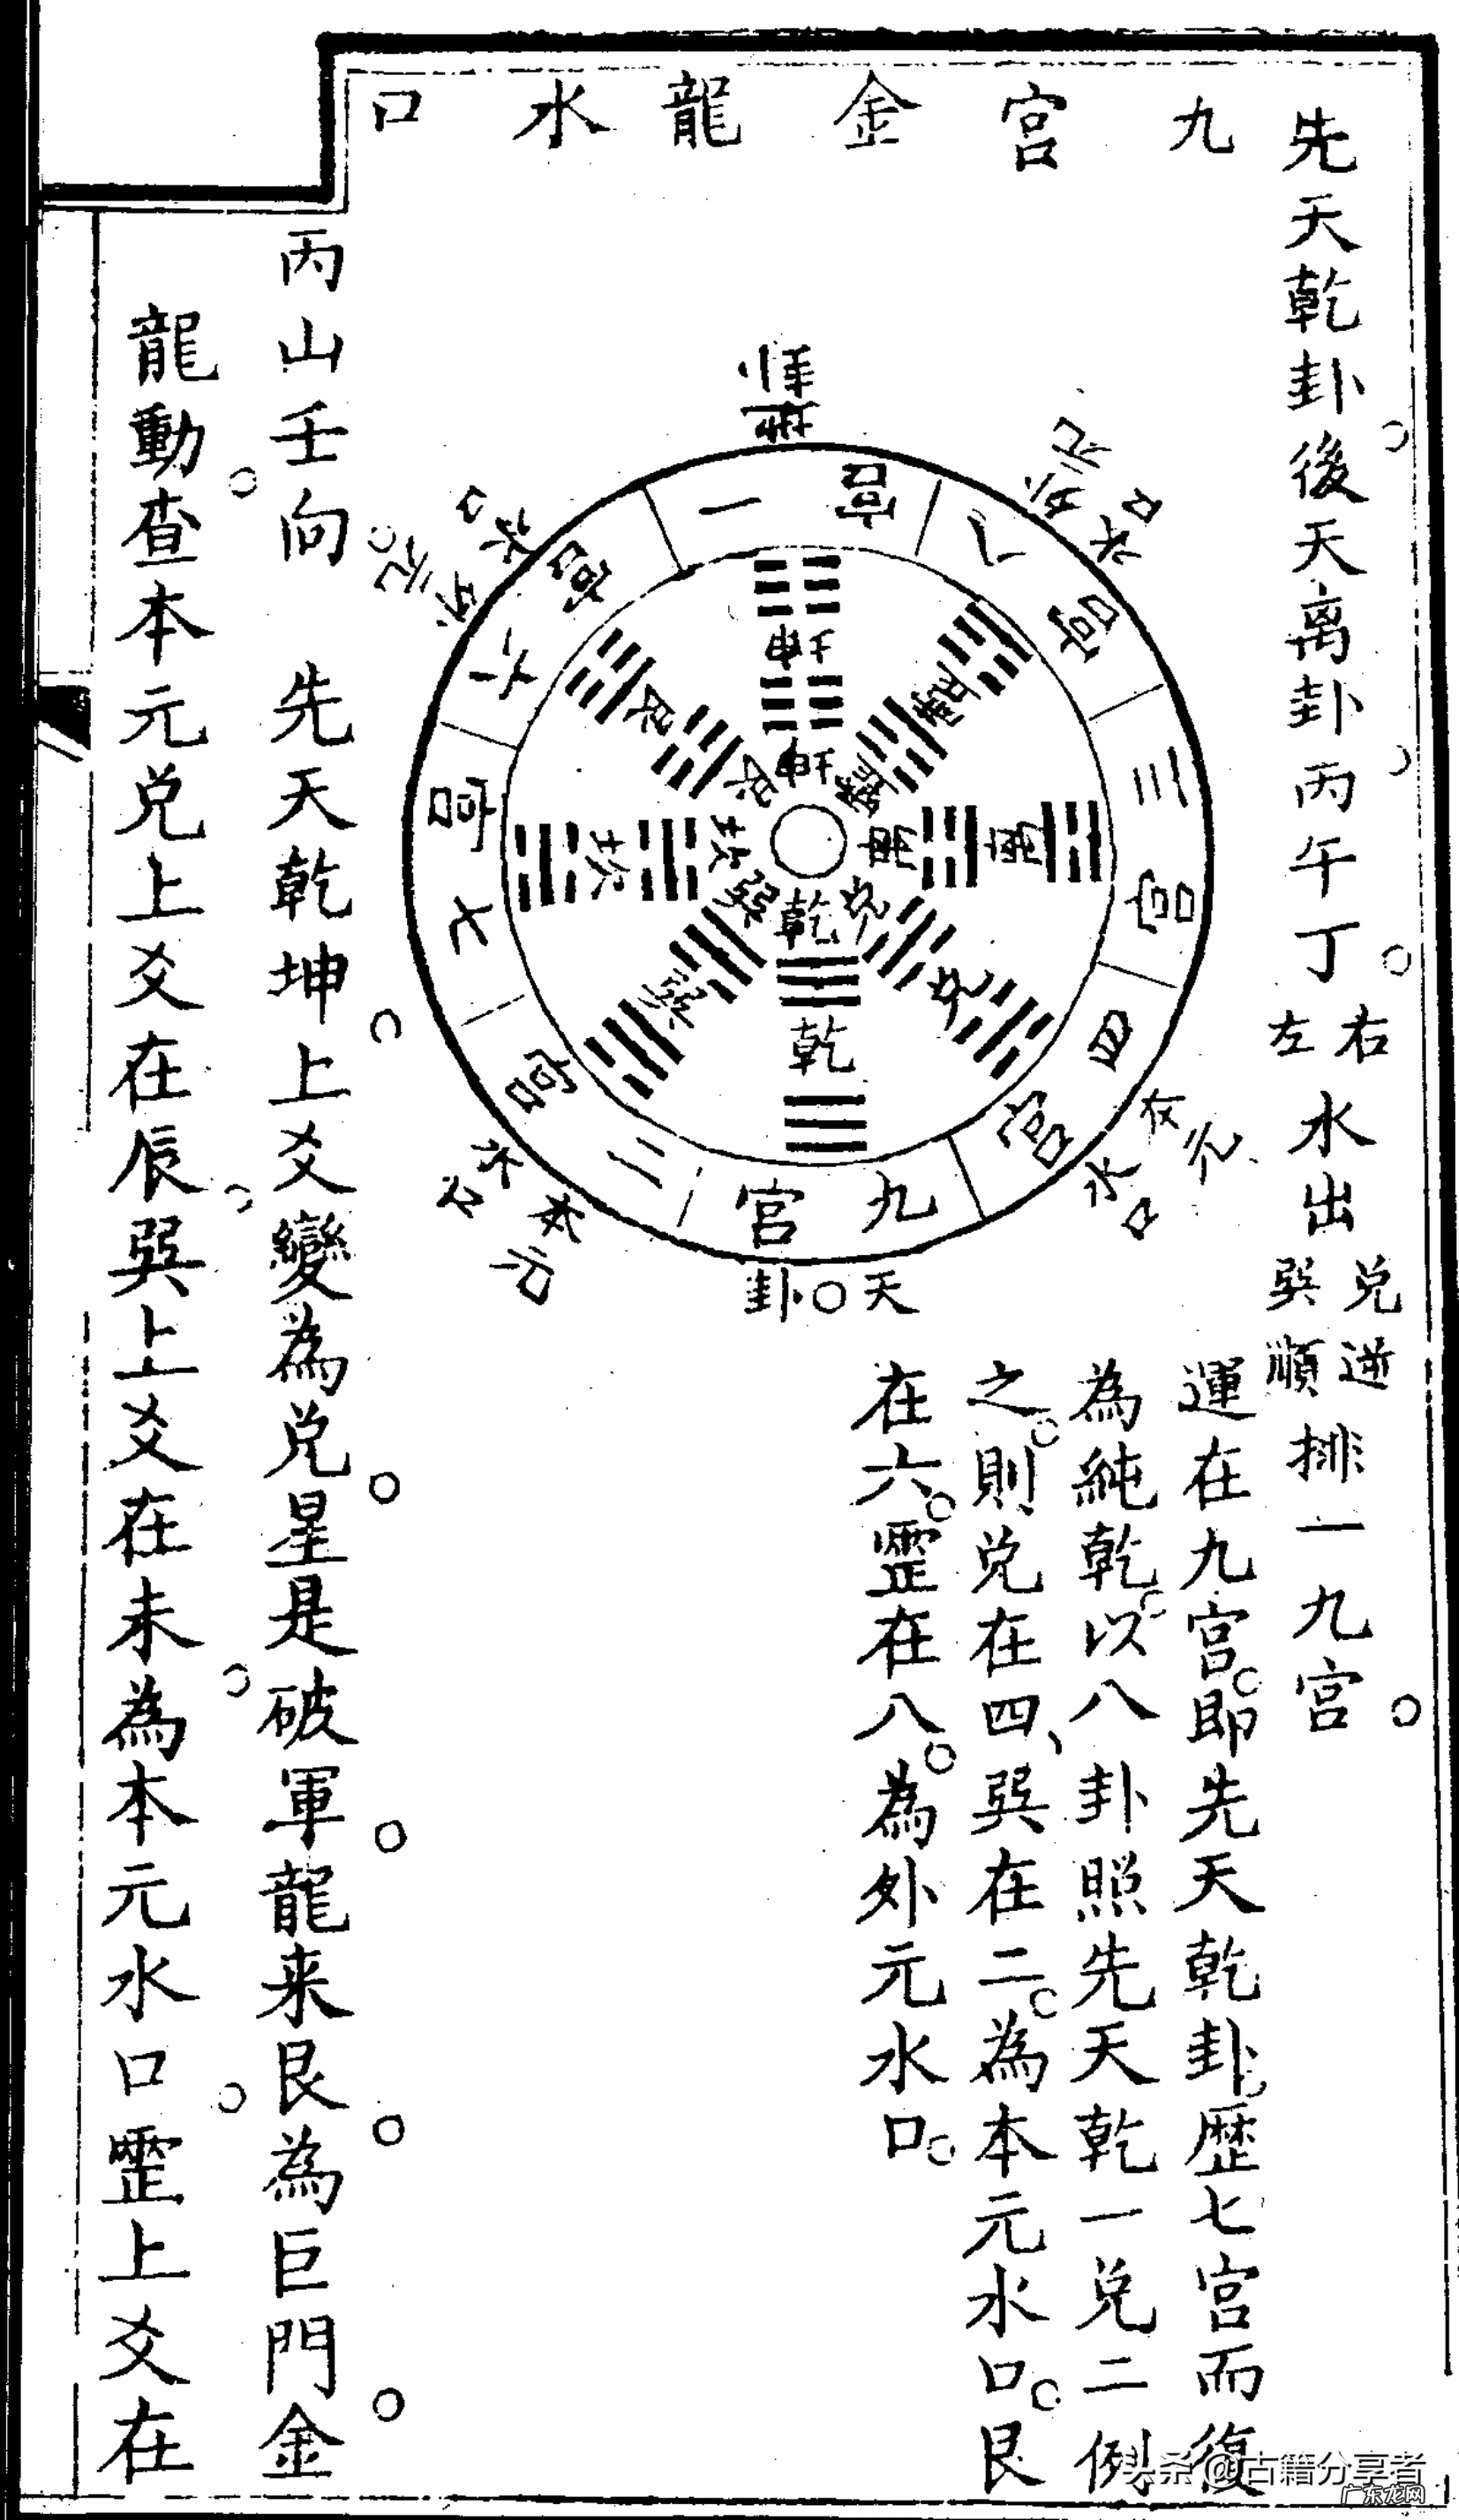 先天乾卦後天离卦丙午丁右左水出兑巽逆順排一九宫
九宫金龍水口
運在九宫即先天乾卦歷七宫而復
為純乾以八卦照先天乾一兑二例
之則兑在四、巽在二為本元水口艮
在六䨓在八為外元水口
一宫
八宫
三宫
四宫
九宫
二宫
七宫
六宫
坤
坤
離
離
兑
兑
乾
乾
巽
巽
坎
坎
艮
艮
水口
水口
水口
水口
本元
天卦
丙山壬向 先天乾坤上爻變為兑星是破軍龍来艮為巨門金
龍動查本元兑上爻在辰巽上爻在未為本元水口䨓上爻在
头条 @古籍分享者
广东龙网